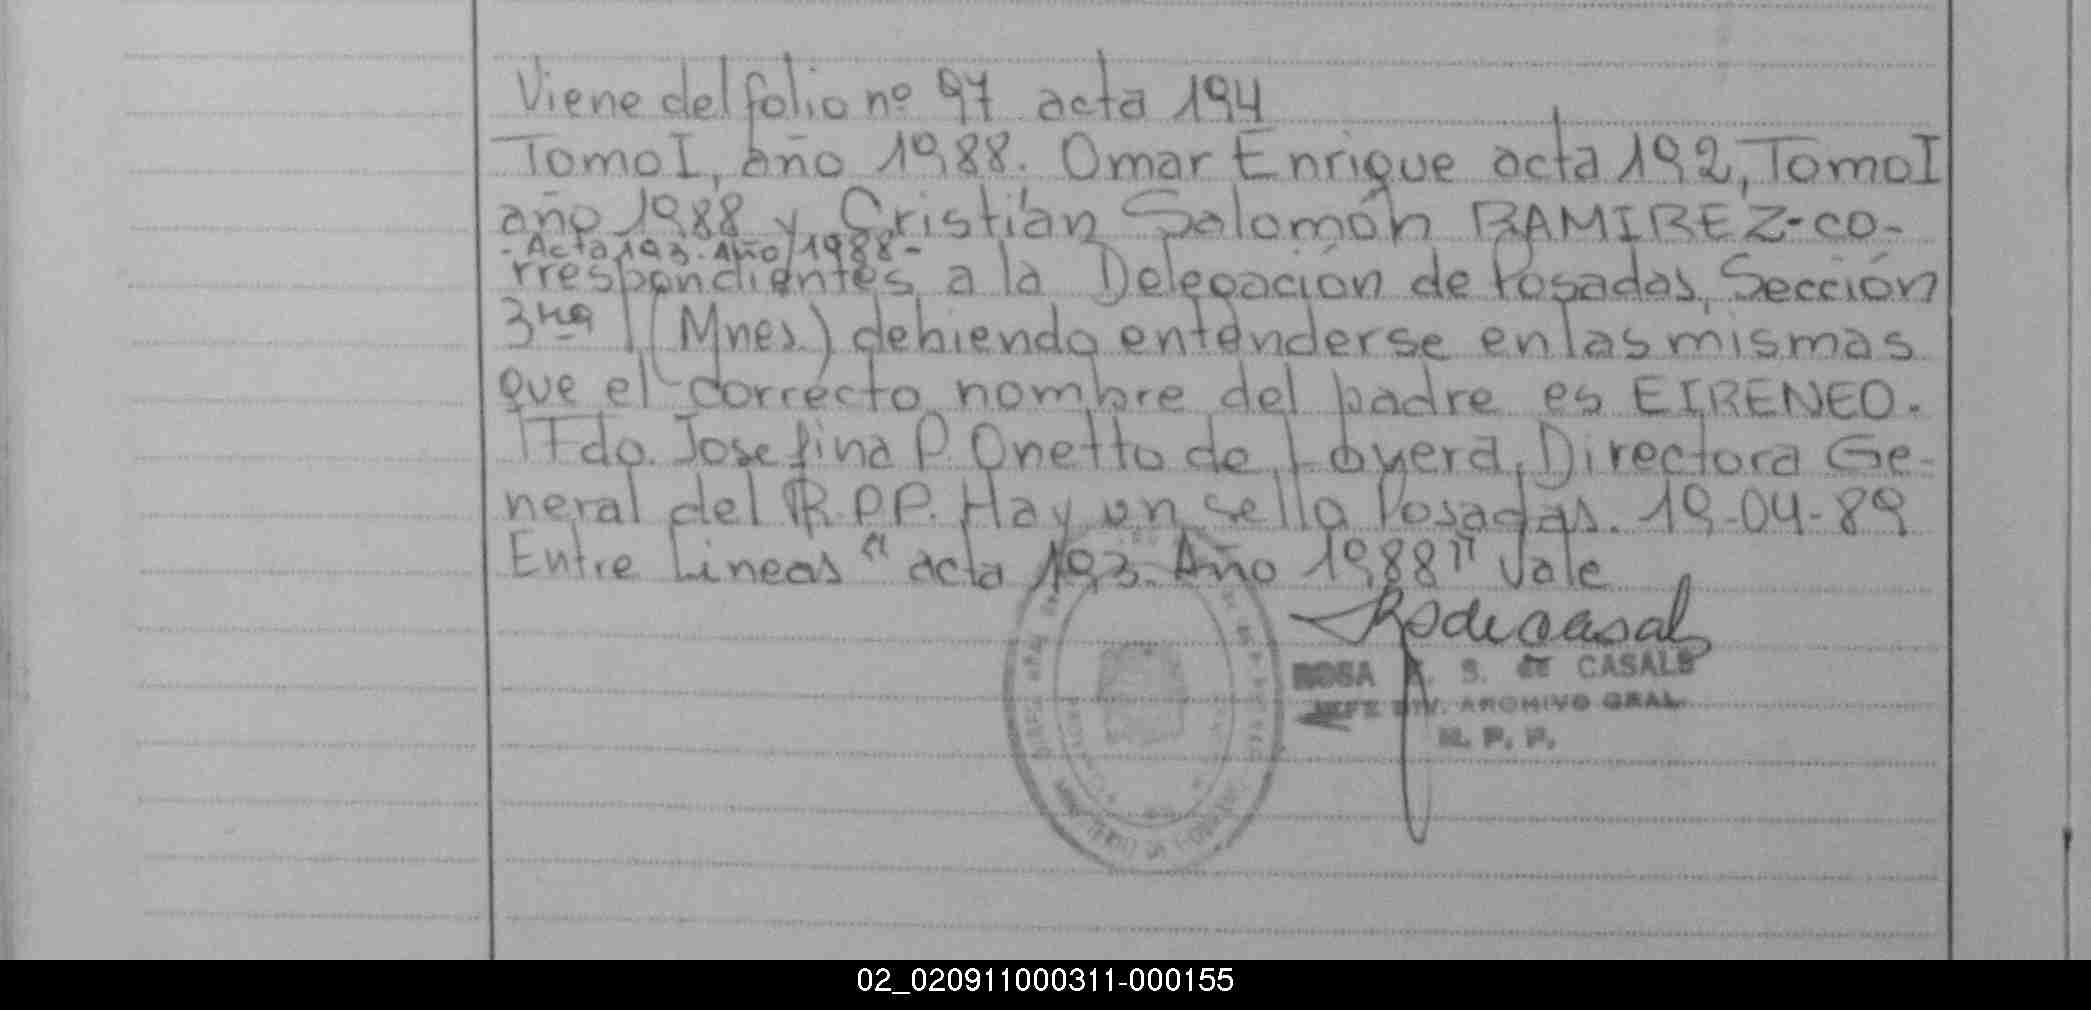 Viene del folio nº 97 acta 194
Tomo I, año 1988. Omar Enrique acta 192, Tomo I
año 1988 y Cristian Salomón RAMIREZ-co-
- Acta 193. Año 1988 -
rrespondientes a la Delegación de Posadas, Sección
3ra (Mnes.) debiendo entenderse en las mismas
que el correcto nombre del padre es EIRENEO.
Fdo. Josefina P. Onetto de Loyera, Directora Ge-
neral del R.P.P. Hay un sello Posadas. 19-04-89
Entre Lineas "acta 193. Año 1988" Vale
ROSA S. de CASALS
JEFE DIV. ARCHIVO GRAL.
R. P. P.
02_020911000311-000155